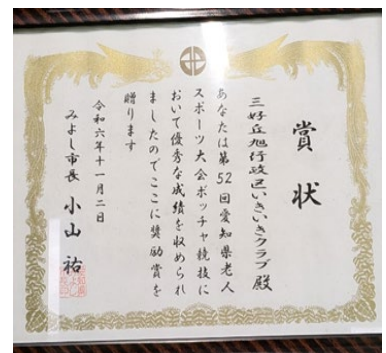 賞状
三好丘旭行政区いきいきクラブ殿
あなたは第52回愛知県老人
スポーツ大会ボッチャ競技に
おいて優秀な成績を収められ
ましたのでここに奨励賞を
贈ります
令和六年十一月二日
みよし市長 小山祐